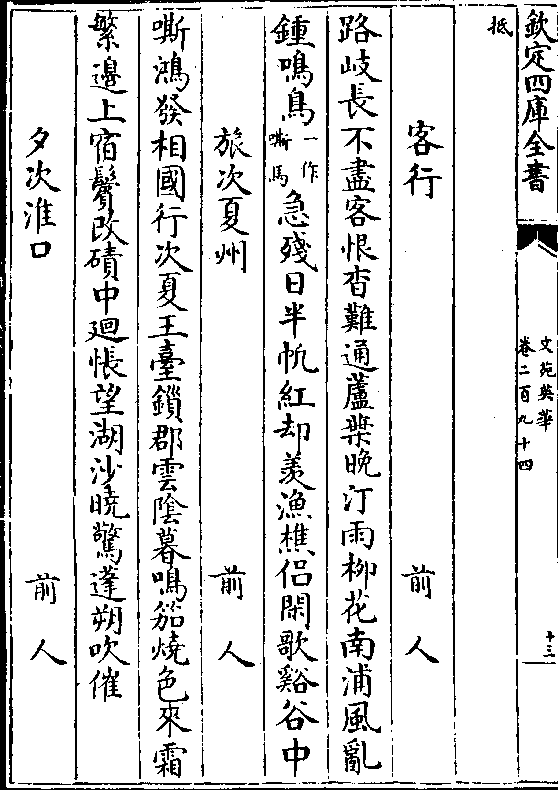 欽定四庫全書
文苑英華
卷二百九十四
十三
抵
客行　前人
路岐長不盡客恨杳難通蘆葉晚汀雨柳花南浦風亂
鍾鳴鳥一作嘶馬急殘日半帆紅却羨漁樵侣閑歌谿谷中
旅次夏州　前人
嘶鴻發相國行次夏王臺鎖郡雲陰暮鳴笳燒色來霜
繁邊上宿鬢改磧中廻悵望湖沙曉驚蓬朔吹催
夕次淮口　前人